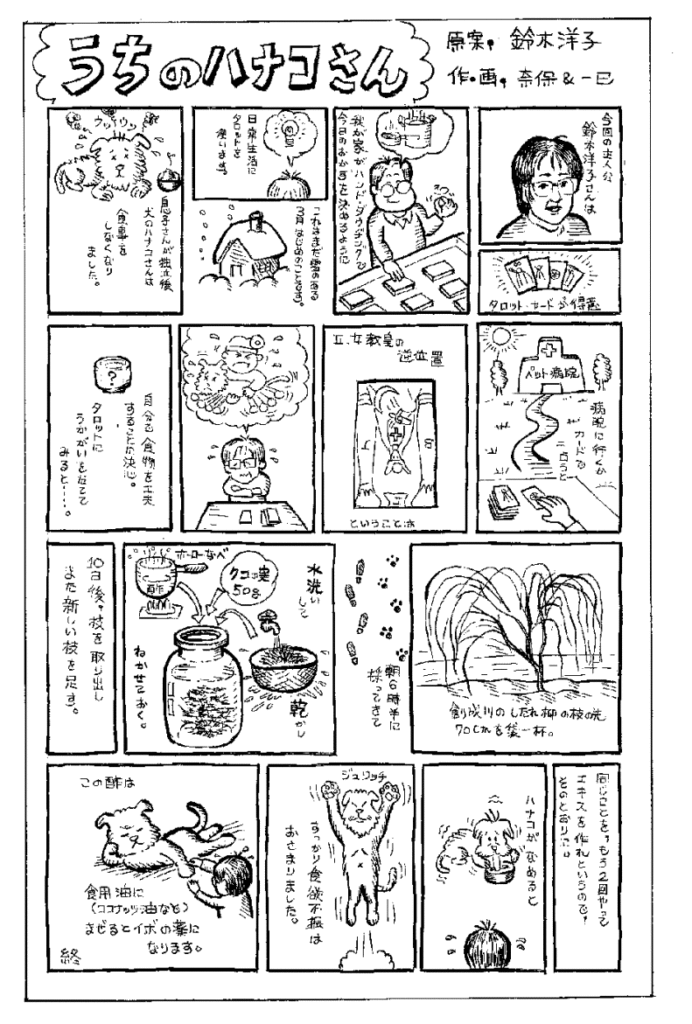 うちのハナコさん
原案, 鈴木洋子
作・画, 奈保&一巳
今回の主人公
鈴木洋子さんは
タロット・カードが得意
我が家がハンド・ダウジングで
今日のおかずを決めるように
日常生活に
タロットを
使います。
これはまだ雪のある
3月はじめのことです。
ウッ ウッ
息子さんが独立後
犬のハナコさんは
食事を
しなくなり
ました。
ペット病院
病院に行くか
カードで
占うと
II.女教皇の
逆位置
ということは
?
自分で食物を工夫
することに決心。
タロットに
うかがいをたてて
みると……。
創成川のしだれ柳の枝の先
70cmを袋一杯。
朝6時半に
採ってきて
水洗い
して
ホーローなべ
酢
クコの実
50g
乾かし
ねかせておく。
10日後,枝を取り出し
また新しい枝を足す。
同じことを,もう2回やって
エキスを作れというので,
そのとおりに。
ハナコがなめると
ジュリッチ
すっかり食欲不振は
おさまりました。
この酢は
食用油に
(ココナッツ油など)
まぜるとイボの薬に
なります。
終